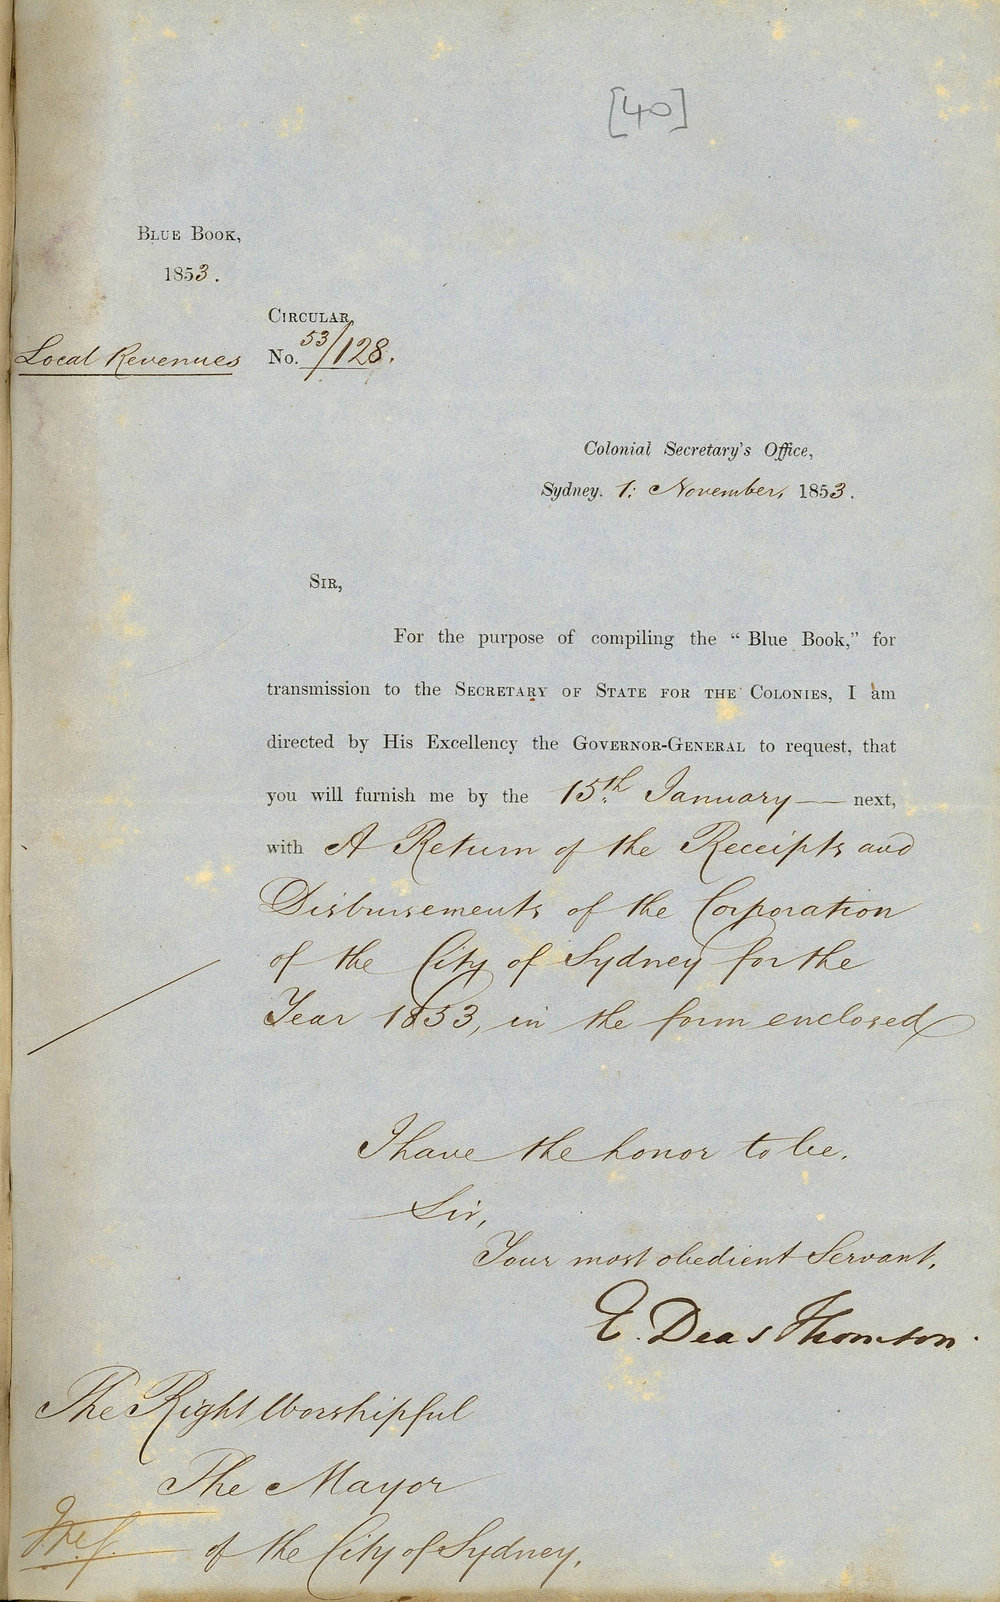 [40]
BLUE BOOK,
1853.
CIRCULAR,
Local Revenues No. 53/128.
Colonial Secretary's Office,
Sydney. 1: November, 1853.
SIR,
For the purpose of compiling the “Blue Book,” for
transmission to the SECRETARY OF STATE FOR THE COLONIES, I am
directed by His Excellency the GOVERNOR-GENERAL to request, that
you will furnish me by the 15th January — next,
with A Return of the Receipts and
Disbursements of the Corporation
of the City of Sydney for the
Year 1853, in the form enclosed
I have the honor to be.
Sir,
Your most obedient Servant,
E. Deas Thomson.
The Right Worshipful
The Mayor
of the City of Sydney.